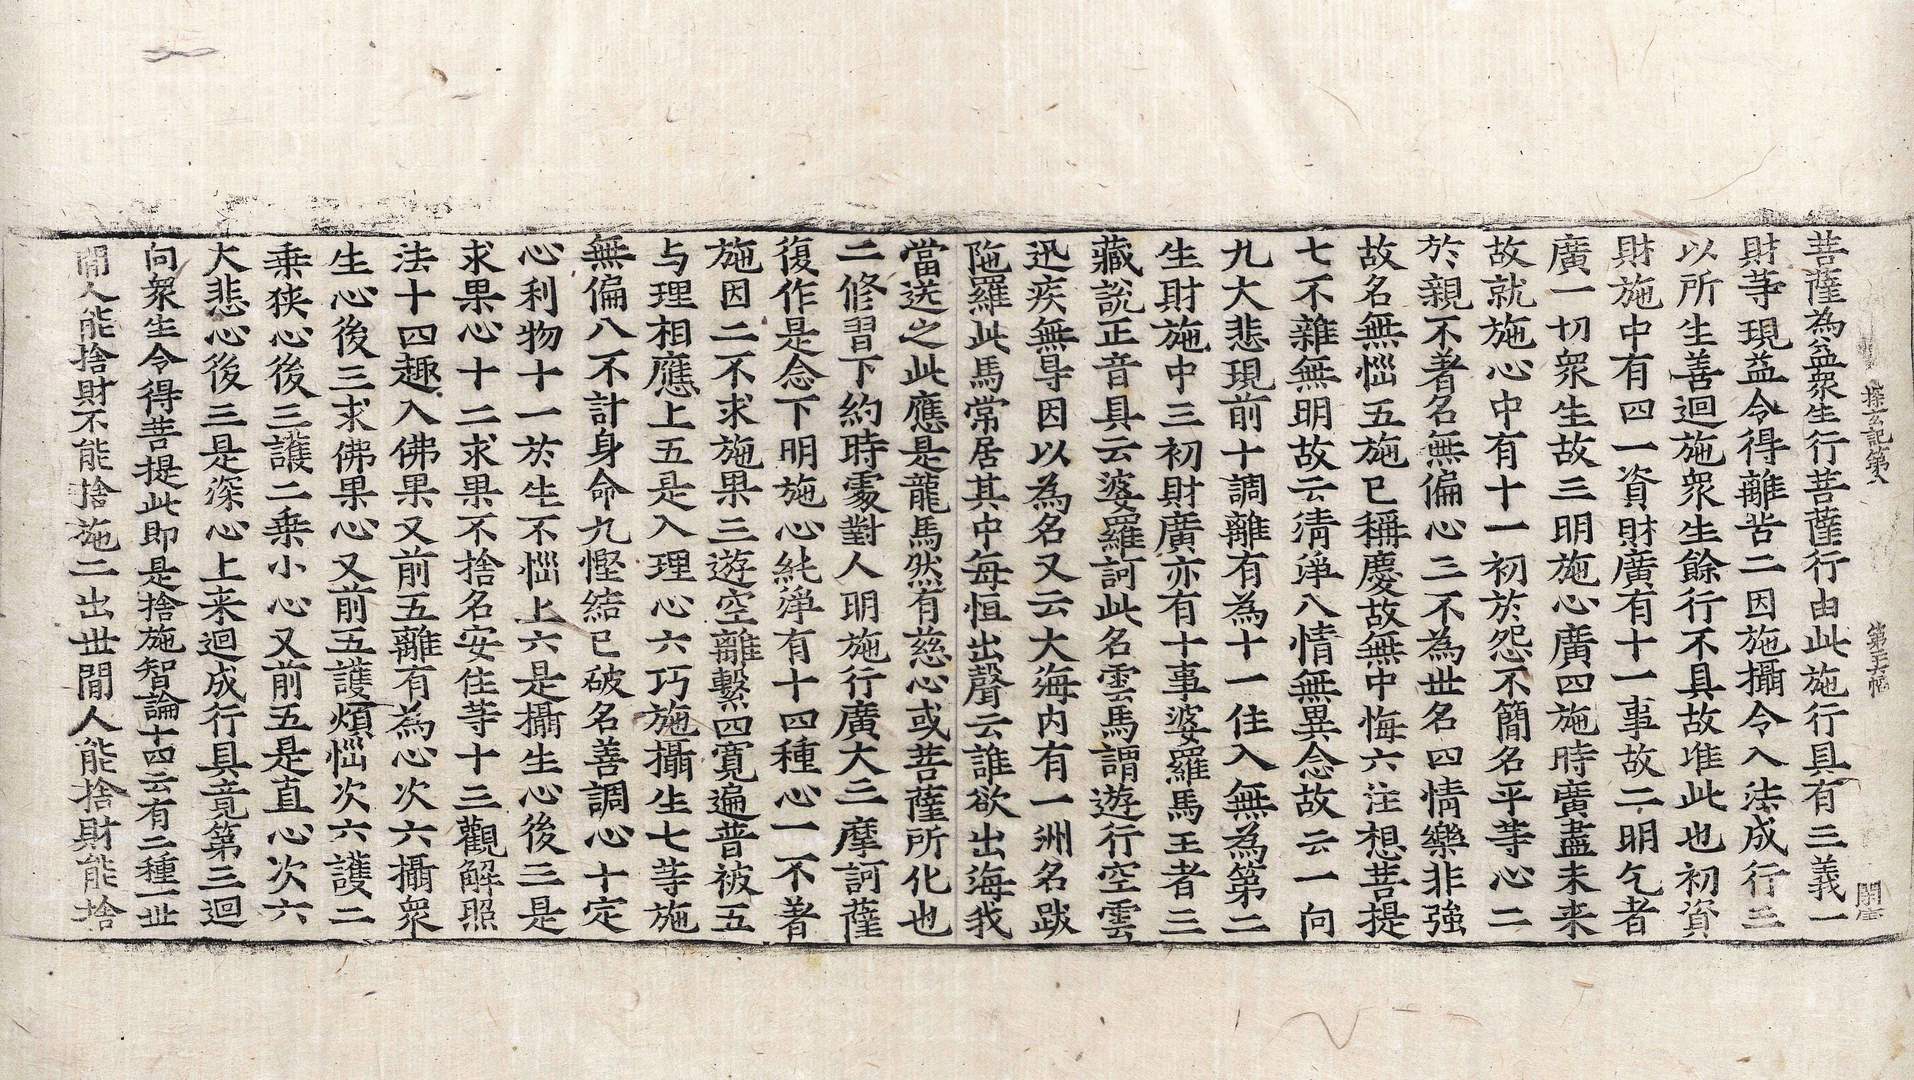 探玄記第八
菩薩為益衆生行菩薩行由此施行具有三義一
財等現益令得離苦二因施攝令入法成行三
以所生善迴施衆生餘行不具故唯此也初資
財施中有四一資財廣有十一事故二明乞者
廣一切衆生故三明施心廣四施時廣盡未来
故就施心中有十一初於怨不簡名平等心二
於親不著名無偏心三不為世名四情樂非強
故名無惱五施已稱慶故無中悔六注想菩提
七不雜無明故云清淨八情無異念故云一向
九大悲現前十調離有為十一住入無為第二
生財施中三初財廣亦有十事婆羅馬王者三
藏說正音具云婆羅訶此名雲馬謂遊行空雲
迅疾無导因以為名又云大海内有一洲名跋
陁羅此馬常居其中每恒出聲云誰欲出海我
當送之此應是龍馬然有慈心或菩薩所化也
二修習下約時處對人明施行廣大三摩訶薩
復作是念下明施心純淨有十四種心一不著
施因二不求施果三遊空離繫四寬遍普被五
与理相應上五是入理心六巧施攝生七等施
無偏八不計身命九慳結已破名善調心十定
心利物十一於生不惱上六是攝生心後三是
求果心十二求果不捨名安住等十三觀解照
法十四趣入佛果又前五離有為心次六攝衆
生心後三求佛果心又前五護煩惱次六護二
乘狹心後三護二乘小心又前五是直心次六
大悲心後三是深心上来迴成行具竟第三迴
向衆生令得菩提此即是捨施智論十四云有二種一世
閒人能捨財不能捨施二出世閒人能捨財能捨